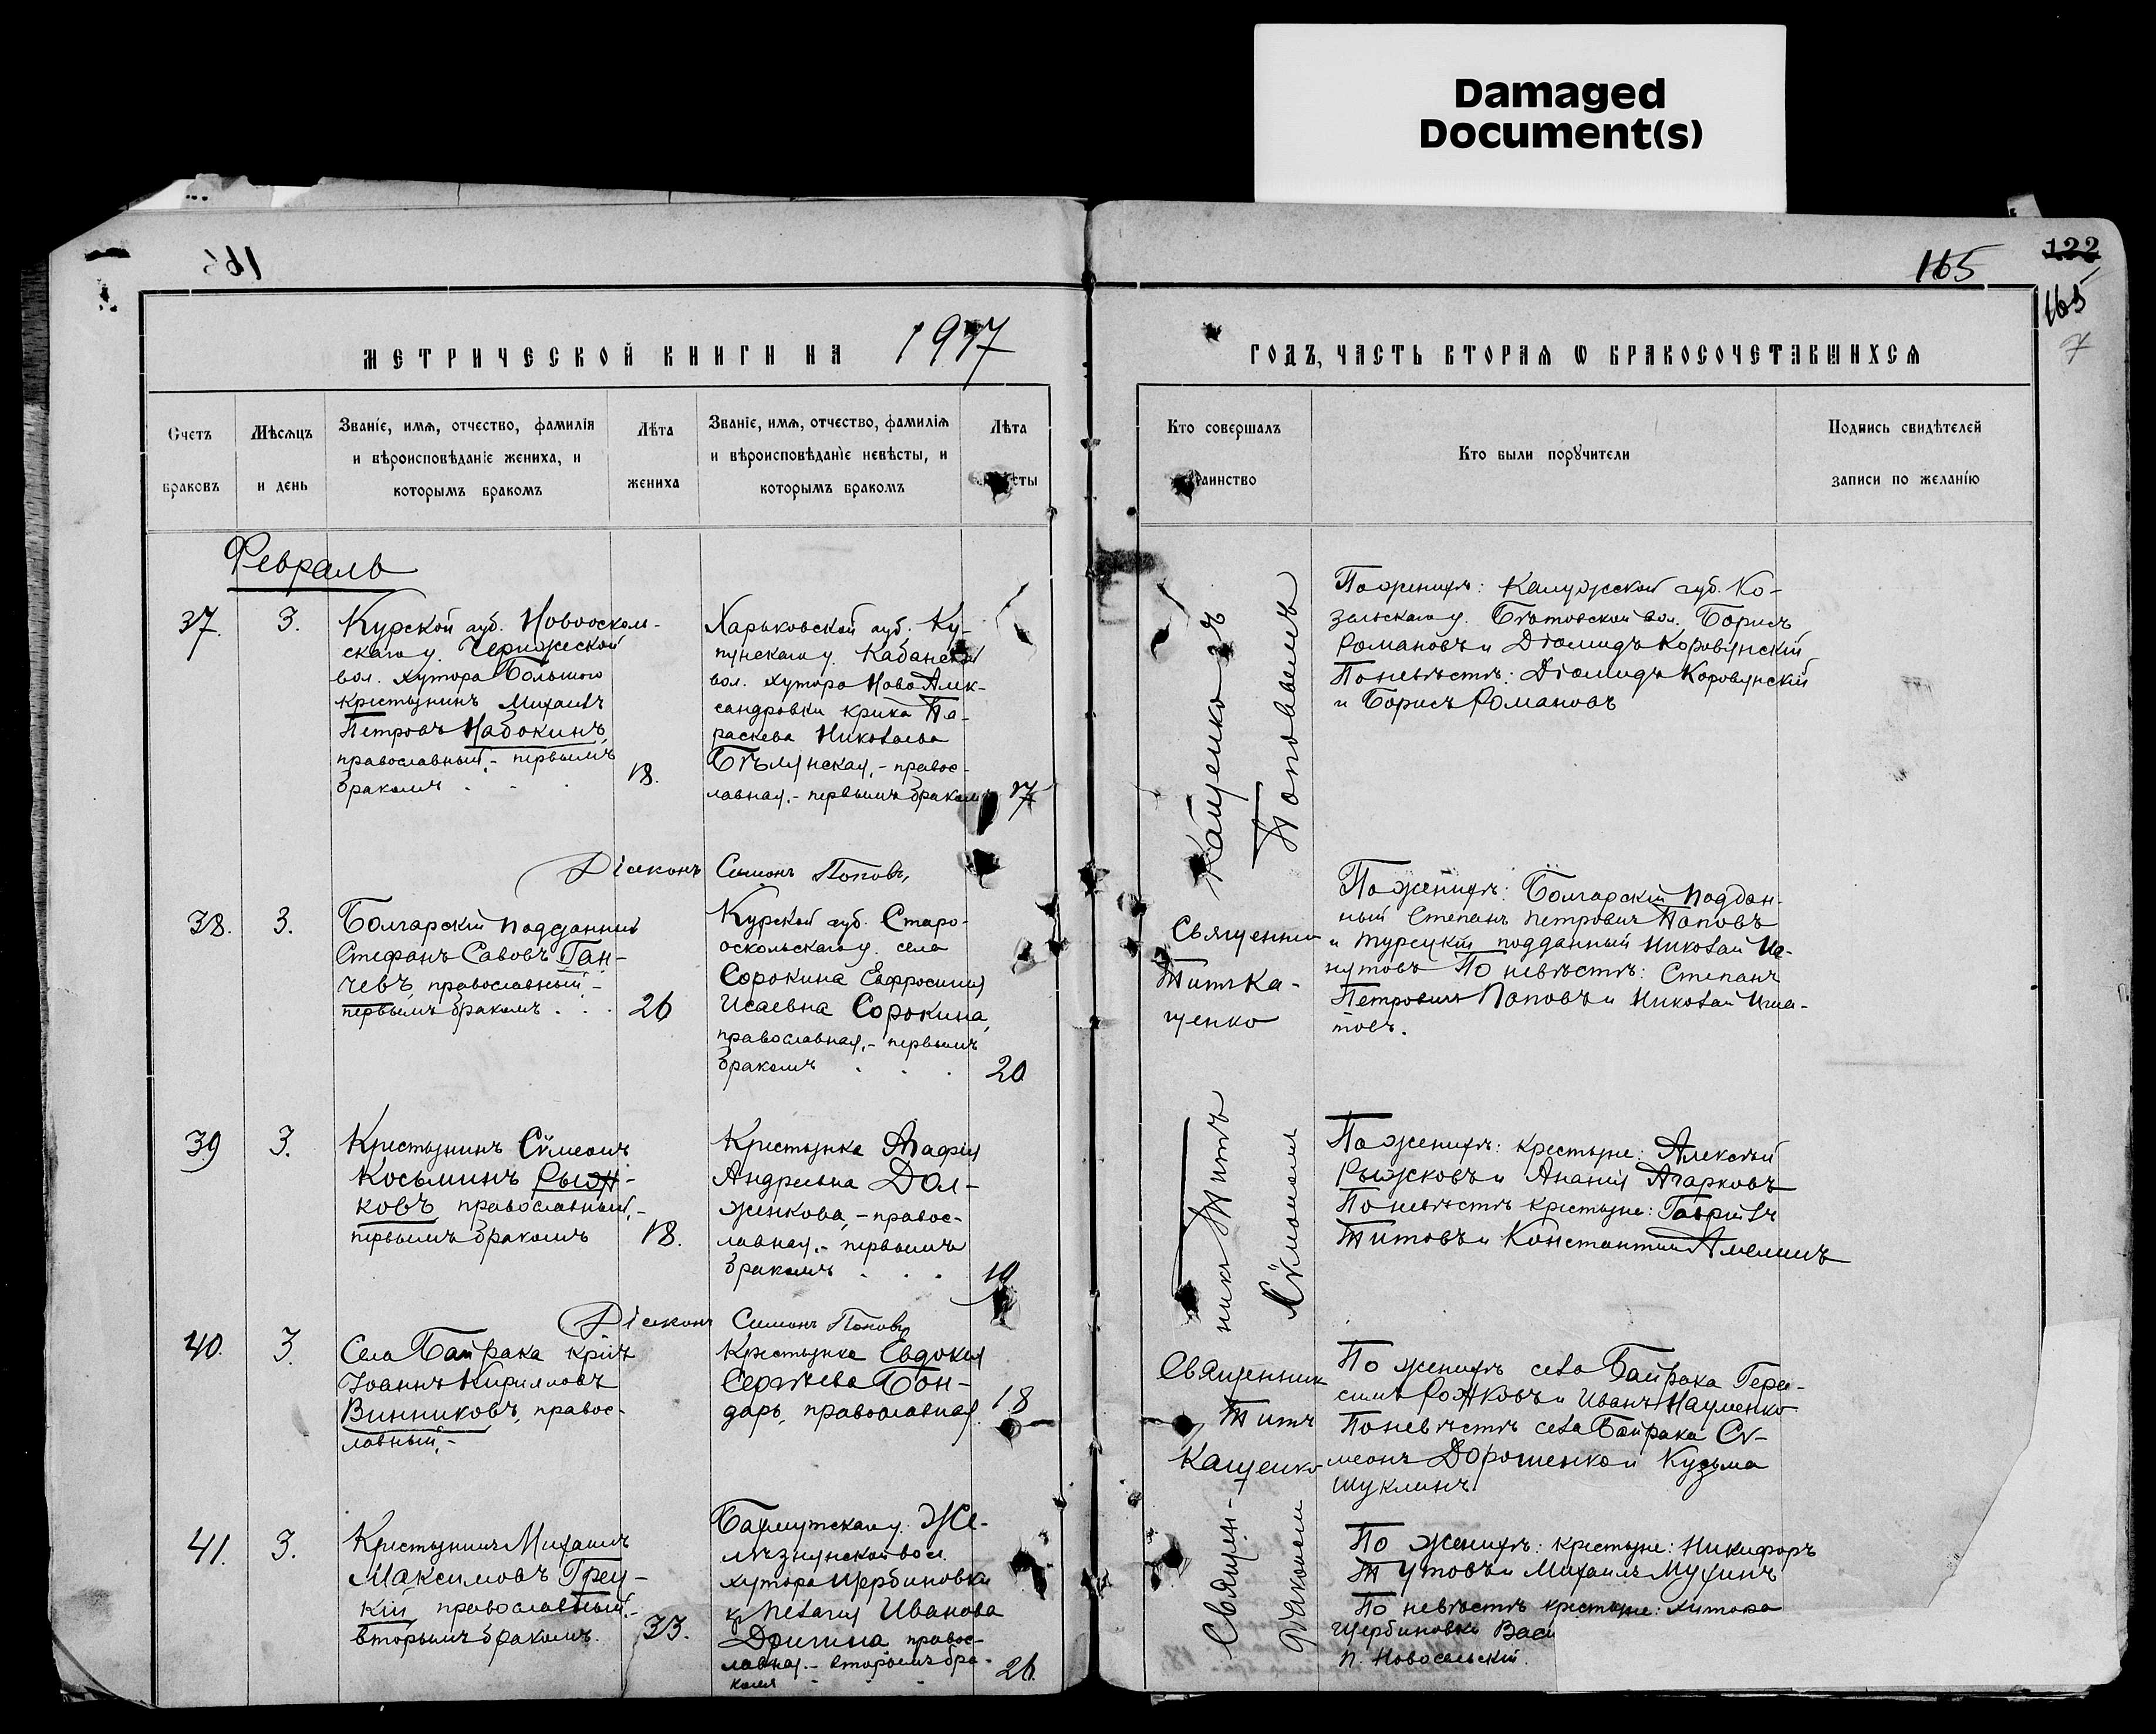 Damaged
Document(s)
165
122
165
7
МЕТРИЧЕСКОЙ КНИГИ НА 1917
ГОДЪ, ЧАСТЬ ВТОРАЯ Ѡ БРАКОСОЧЕТАВШИХСЯ
Счетъ
браковъ
Мѣсяцъ
и день
Званіе, имя, отчество, фамилія
и вѣроисповѣданіе жениха, и
которымъ бракомъ
Лѣта
жениха
Званіе, имя, отчество, фамилія
и вѣроисповѣданіе невѣсты, и
которымъ бракомъ
Лѣта
Кто совершалъ
Кто были поручители
Подпись свидѣтелей
записи по желанію
Февраль
37.
3.
Курской губ. Новооскол-
скаго у.
вол. хутора Большого
крестьянинъ Михаилъ
Петровъ Набокинъ,
православный,- первымъ
бракомъ
18.
Харьковской губ. Ку-
пянскаго у. Кабанской
вол. хутора Ново Алек-
сандровки кр-ка Па-
раскева Николаева
Бѣлянская,- правос-
лавная,- первымъ бракомъ
17
По женихѣ: Калужской губ. Ко-
зельскаго у. вол. Борисъ
Романовъ и Діомидъ Коровянскій
По невѣстѣ: Діомидъ Коровянскій
и Борисъ Романовъ
Діаконъ Симонъ Поповъ,
38.
3.
Болгарскій подданный
Стефанъ Савовъ Ган-
чевъ, православный,-
первымъ бракомъ
26
Курской губ. Старо-
оскольскаго у. села
Сорокина Евфросинія
Исаевна Сорокина,
православная,- первымъ
бракомъ
20
Священни
Титъ Ка-
щенко
Кащенко
Поповымъ
По женихѣ: Болгарскій поддан-
ный Степанъ Петровичъ Поповъ
и турецкій подданный Николай
По невѣстѣ: Степанъ
Петровичъ Поповъ и Николай
товъ.
39
3.
Крестьянинъ Сѵмеонъ
Косьминъ Рыж-
ковъ православный,-
первымъ бракомъ
18.
Крестьянка Агафія
Андреевна Дол-
женкова,- правос-
лавная.- первымъ
бракомъ
никъ Титъ
Сѵмономъ
По женихѣ: крестьяне: Алексѣй
Рыжковъ и Ананія Агарковъ
По невѣстѣ крестьяне: Гавріилъ
Титовъ и Константинъ Амелинъ
Діаконъ Симонъ Поповъ
40.
3.
Села Байрака кр-нъ
Іоаннъ Кирилловъ
Винниковъ, правос-
лавный,-
Крестьянка Евдокія
Сергѣева Бон-
дарь, православная
18
Священник
Титъ
Кащенко
По женихѣ села Байрака Гера-
симъ Рожковъ и Иванъ Науменко
По невѣстѣ села Байрака Сѵ-
меонъ Дорошенко и Кузьма
Шуклинъ
41.
3.
Крестьянинъ Михаилъ
Максимовъ Грец-
кій православный.-
вторымъ бракомъ.
33.
Бахмутскаго у. Же-
лѣзнянской вол.
хутора Щербиновки
кр. Пелагія Иванова
правос-
лавная.- вторымъ бра-
комъ
26.
Священ-
діакономъ
По женихѣ: крестьяне: Никифоръ
Тутовъ и Михаилъ Мухинъ
По невѣстѣ крестьяне: хутора
Щербиновки Васи
п. Новосельскій.